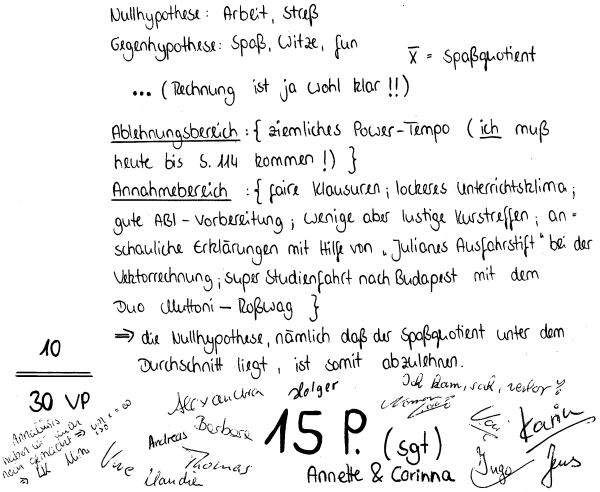 Nullhypothese: Arbeit, Streß
Gegenhypothese: Spaß, Witze, fun
x̄ = Spaßquotient
... (Rechnung ist ja wohl klar!!)
Ablehnungsbereich: { ziemliches Power-Tempo (ich muß
heute bis S. 114 kommen!) }
Annahmebereich: { faire Klausuren; lockeres Unterrichtsklima;
gute ABI-Vorbereitung; wenige aber lustige Kurstreffen; an=
schauliche Erklärungen mit Hilfe von „Julianes Ausfahrstift" bei der
Vektorrechnung; super Studienfahrt nach Budapest mit dem
Duo Muttoni - Roßwag }
⇒ die Nullhypothese, nämlich daß der Spaßquotient unter dem
Durchschnitt liegt, ist somit abzulehnen.
10
30 VP
Alexandra
Holger
Ich kam, sah, verlor
Barbara
Andreas
Thomas
Uwe
Claudia
15 P. (sgt)
Annette & Corinna
Karin
Ingo
Jens